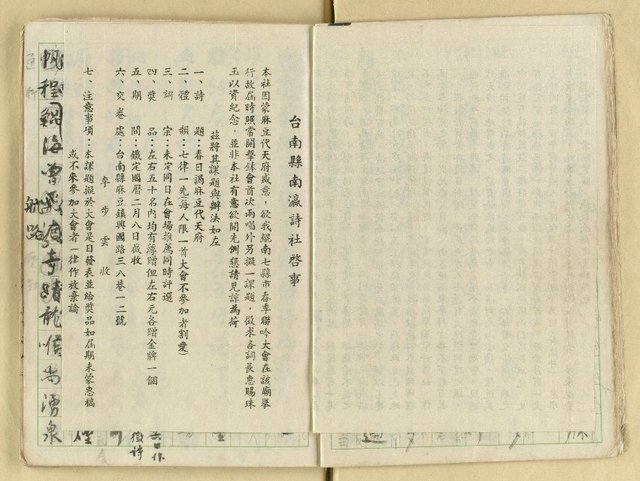 台南縣南瀛詩社啓事
本社因蒙麻豆代天府盛意，欲我縱南七縣市春季聯吟大會在該廟舉
行故屆時照常開擊鉢會首次兩唱外另擬一課題，徵求各詞長惠賜珠
玉以資紀念，並非本社有意欲開先例懇請見諒為荷
茲將其課題與辦法如左
一、詩　題：春日謁麻豆代天府
二、體　韻：七律一先（每人限一首大會不參加者割愛）
三、詞　宗：未定同日在會場推薦同時評選
四、獎　品：左右五十名內均有薄贈但左右元各贈金牌一個
五、期　間：鐵定國曆二月八日截收
六、交卷處：台南縣麻豆鎮興國路三八巷一二號
李步雲收
七、注意事項：本課題擬於大會是日發表並給獎品如屆期未蒙惠稿
或不來參加大會者一律作放棄論
航路
帆程
海曾
龍喉尚湧泉
徵詩